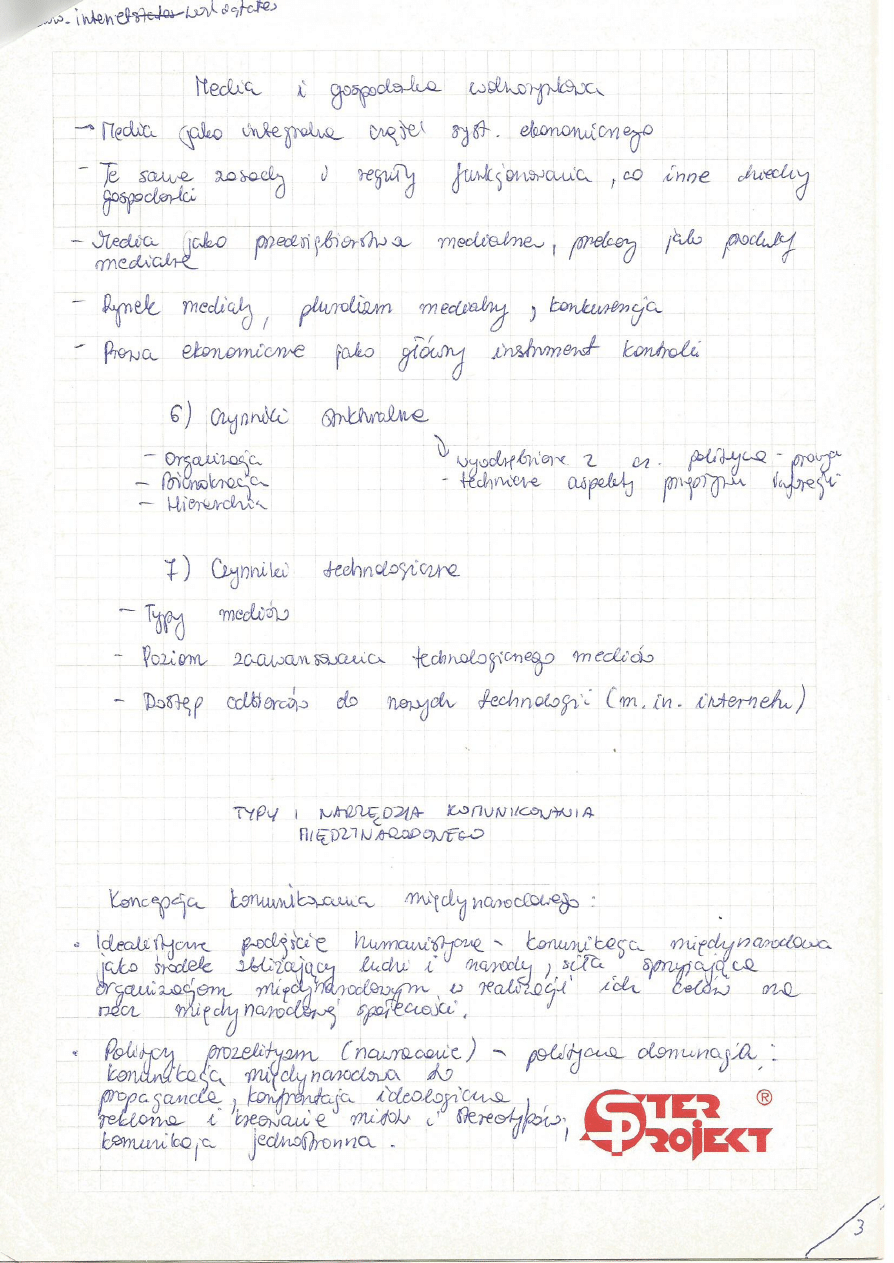 Media i gospodarka wolnorynkowa
→ Media jako integralna część syst. ekonomicznego
- Te same zasady i reguły funkcjonowania, co inne
gospodarki
- Media jako przedsiębiorstwa medialne, przekazy jako produkty
medialne
- Rynek medialny, pluralizm medialny, konkurencja
- Prawa ekonomiczne jako główny instrument kontroli
6) Czynniki strukturalne
- Organizacja
- Biurokracja
- Hierarchia
↘ wyodrębnione z cz. polityczne -
- techniczne aspekty
7) Czynniki technologiczne
- Typy mediów
- Poziom zaawansowania technologicznego mediów
- Dostęp odbiorców do nowych technologii (m.in. internetu)
TYPY I NARZĘDZIA KOMUNIKOWANIA
MIĘDZYNARODOWEGO
Koncepcja komunikowania międzynarodowego:
• Idealistyczne podejście humanistyczne - komunikacja międzynarodowa
jako środek zbliżający ludzi i narody, siła sprzyjająca
organizacjom międzynarodowym w realizacji ich celów na
rzecz międzynarodowej społeczności.
• Polityczny prozelityzm (nawracanie) - polityczna dominacja:
komunikacja międzynarodowa to
propaganda, konfrontacja ideologiczna,
reklama i kreowanie mitów i stereotypów,
komunikacja jednostronna.
STER
PROJEKT ®
3